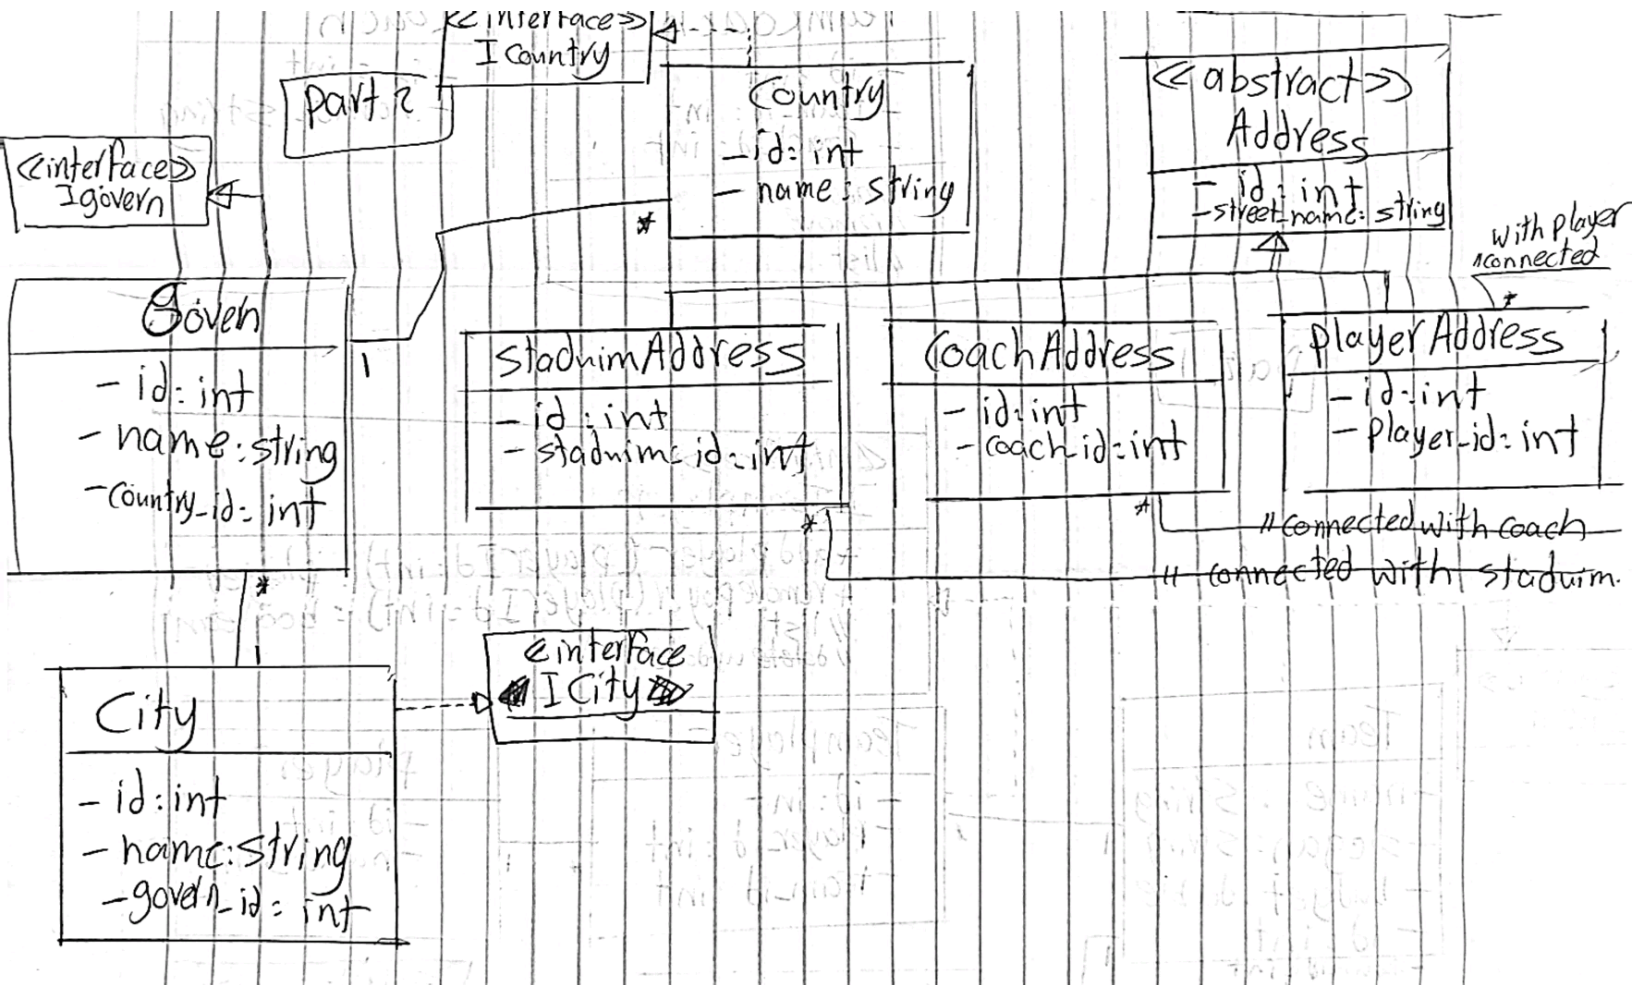 <<interface>>
I country
part 2
Country
- id: int
- name: string
<<abstract>>
Address
- id: int
- street_name: string
<<interface>>
Igovern
*
with player
connected
*
Govern
- id: int
- name: string
- country_id: int
1
staduimAddress
- id: int
- staduim_id: int
*
CoachAddress
- id: int
- coach_id: int
*
playerAddress
- id: int
- player_id: int
// connected with coach
// connected with staduim.
*
1
<<interface
I City
City
- id: int
- name: string
- govern_id: int